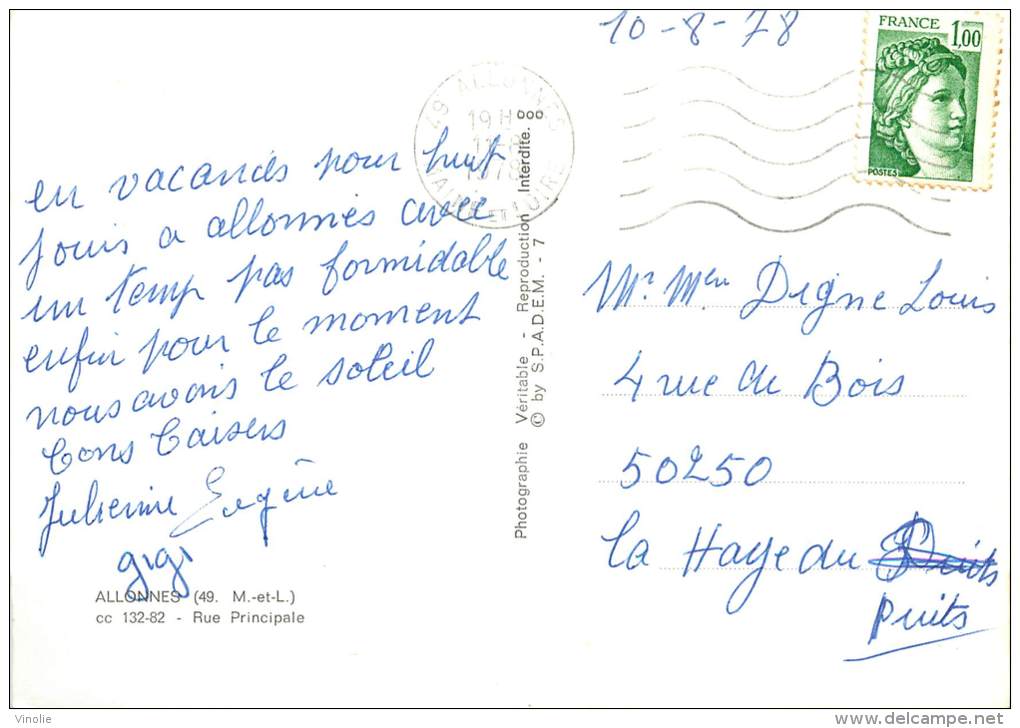 10-8-78
FRANCE
1,00
POSTES
49 ALLONNES
19H
11-8
MAINE ET LOIRE
en vacances pour huit
jouis a allonnes avec
un temp pas formidable
enfin pour le moment
nous avons le soleil
bons baisers
Julienne Eugène
gigi
ALLONNES (49. M.-et-L.)
cc 132-82 - Rue Principale
Photographie Véritable - Reproduction Interdite.
© by S.P.A.D.E.M. - 7
Mr Men Digne Louis
4 rue du Bois
50250
la Haye du Puits
Puits
Vinolie
www.delcampe.net